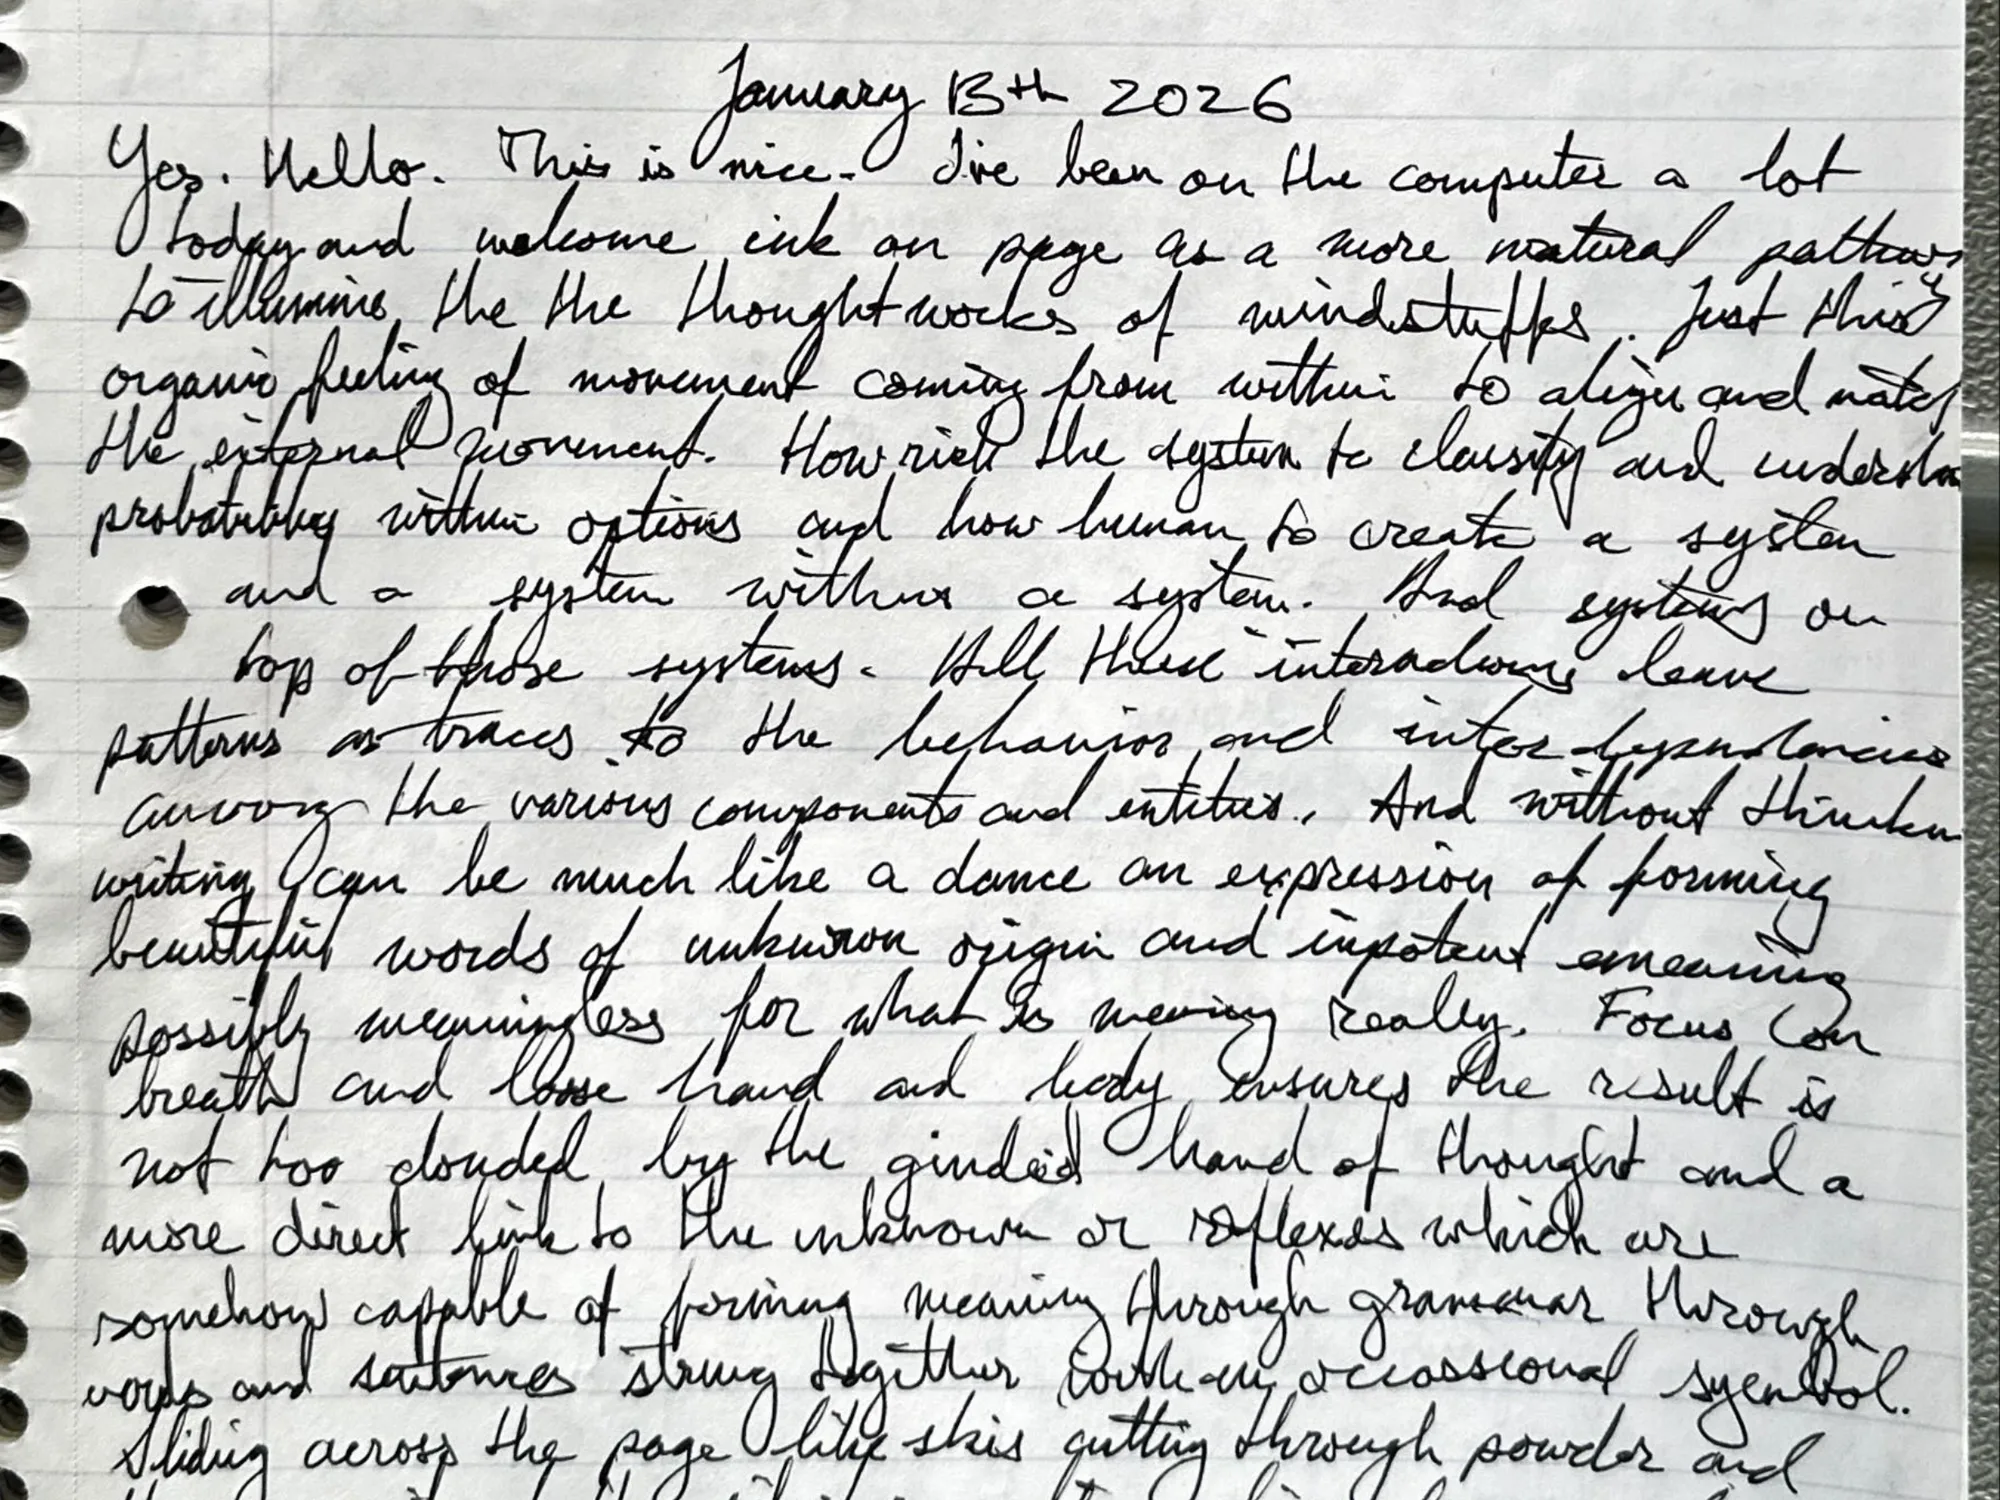 January 13th 2026
Yes. Hello. This is nice. I've been on the computer a lot
today and welcome ink on page as a more natural pathway
to illumine the the thoughtworks of mindstuffs. Just this
organic feeling of movement coming from within to align and match
the external movement. How rich the system to classify and understa
probabilities within options and how human to create a system
and a system within a system. And systems on
top of those systems. All these interactions leave
patterns as traces to the behavior and inter-dependancies
among the various components and entities. And without thinkin
writing can be much like a dance an expression of forming
beautiful words of unknown origin and impotent meaning
possibly meaningless for what is meaning really. Focus on
breath and loose hand and body ensures the result is
not too clouded by the hand of thought and a
more direct link to the unknown or reflexes which are
somehow capable of forming meaning through grammar through
words and sentences strung together with an occassional symbol.
Sliding across the page like skis cutting through powder and